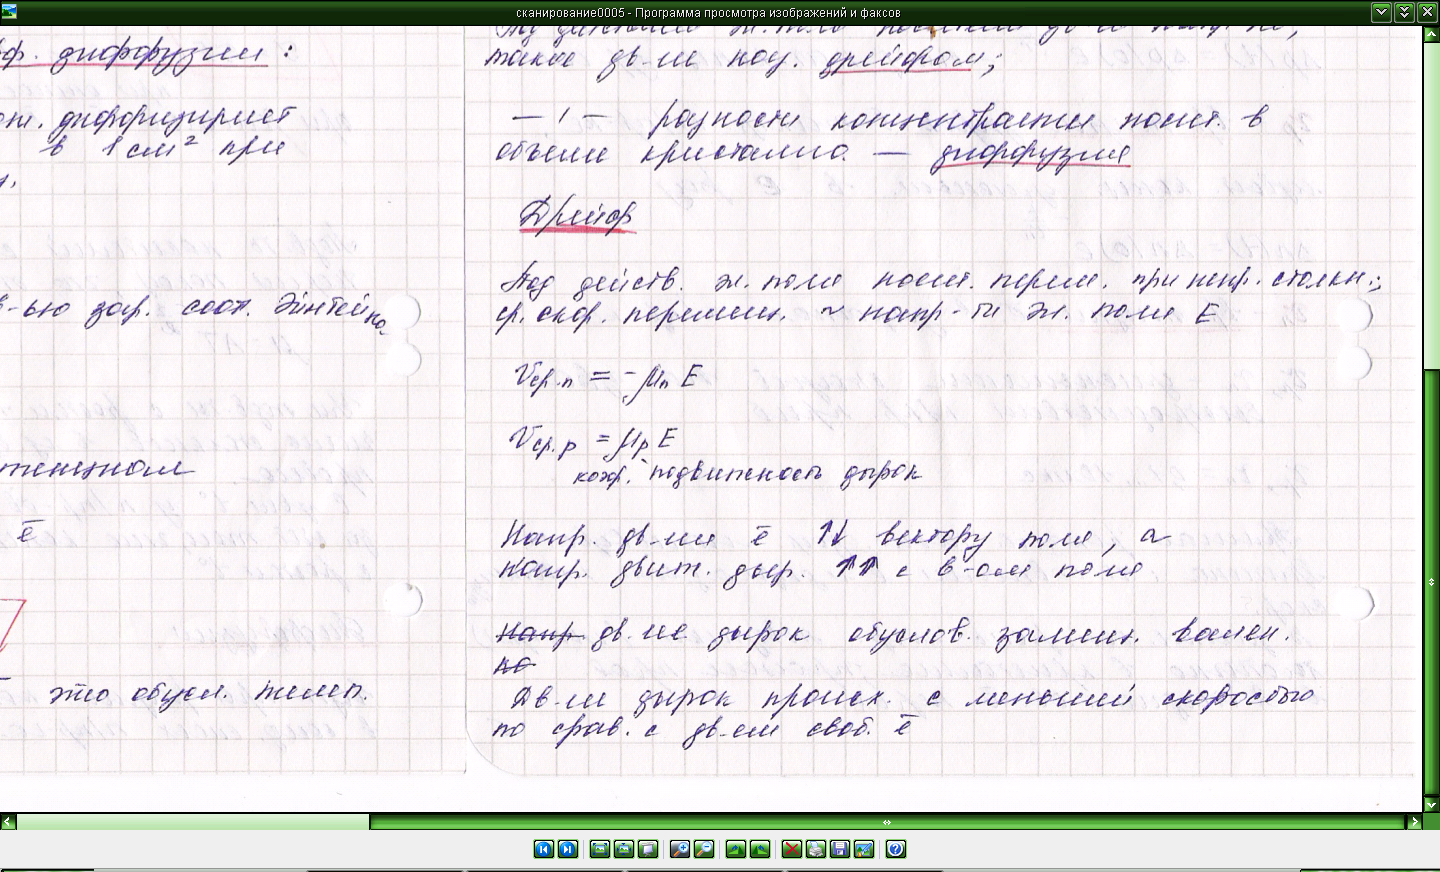 сканирование0005 - Программа просмотра изображений и факсов
ф. диффузии :
диффузирует
в 1 см² при
-ью зар. соот. Эйнтейна.
ē
это обусл. темп.
такое дв-ие наз. дрейфом;
— 〃 — разности концентрации носит. в
объеме кристалла. — диффузия
Дрейф
Под действ. эл. поля носит. перем. при непр. столкн.;
ср. скор. перемещ. ~ напр-ти эл. поля E
Vср.n = -μn E
Vср.p = μp E
коэф. подвижность дырок
Напр. дв-ия ē ↑↓ вектору поля, а
напр. движ. дыр. ↑↑ с в-ом поля
Напр дв-ие дырок обуслов. замещ. вален.
Дв-ие дырок происх. с меньшей скоростью
по срав. с дв-ем своб. ē